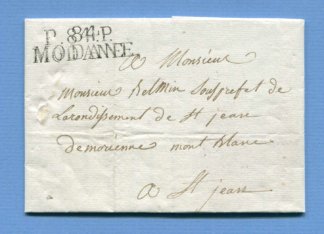 P. 84. P.
MODANNE
a Monsieur
Monsieur Belmin Sousprefet de
Larondissement de St jean
demorienne mont blanc
a St jean